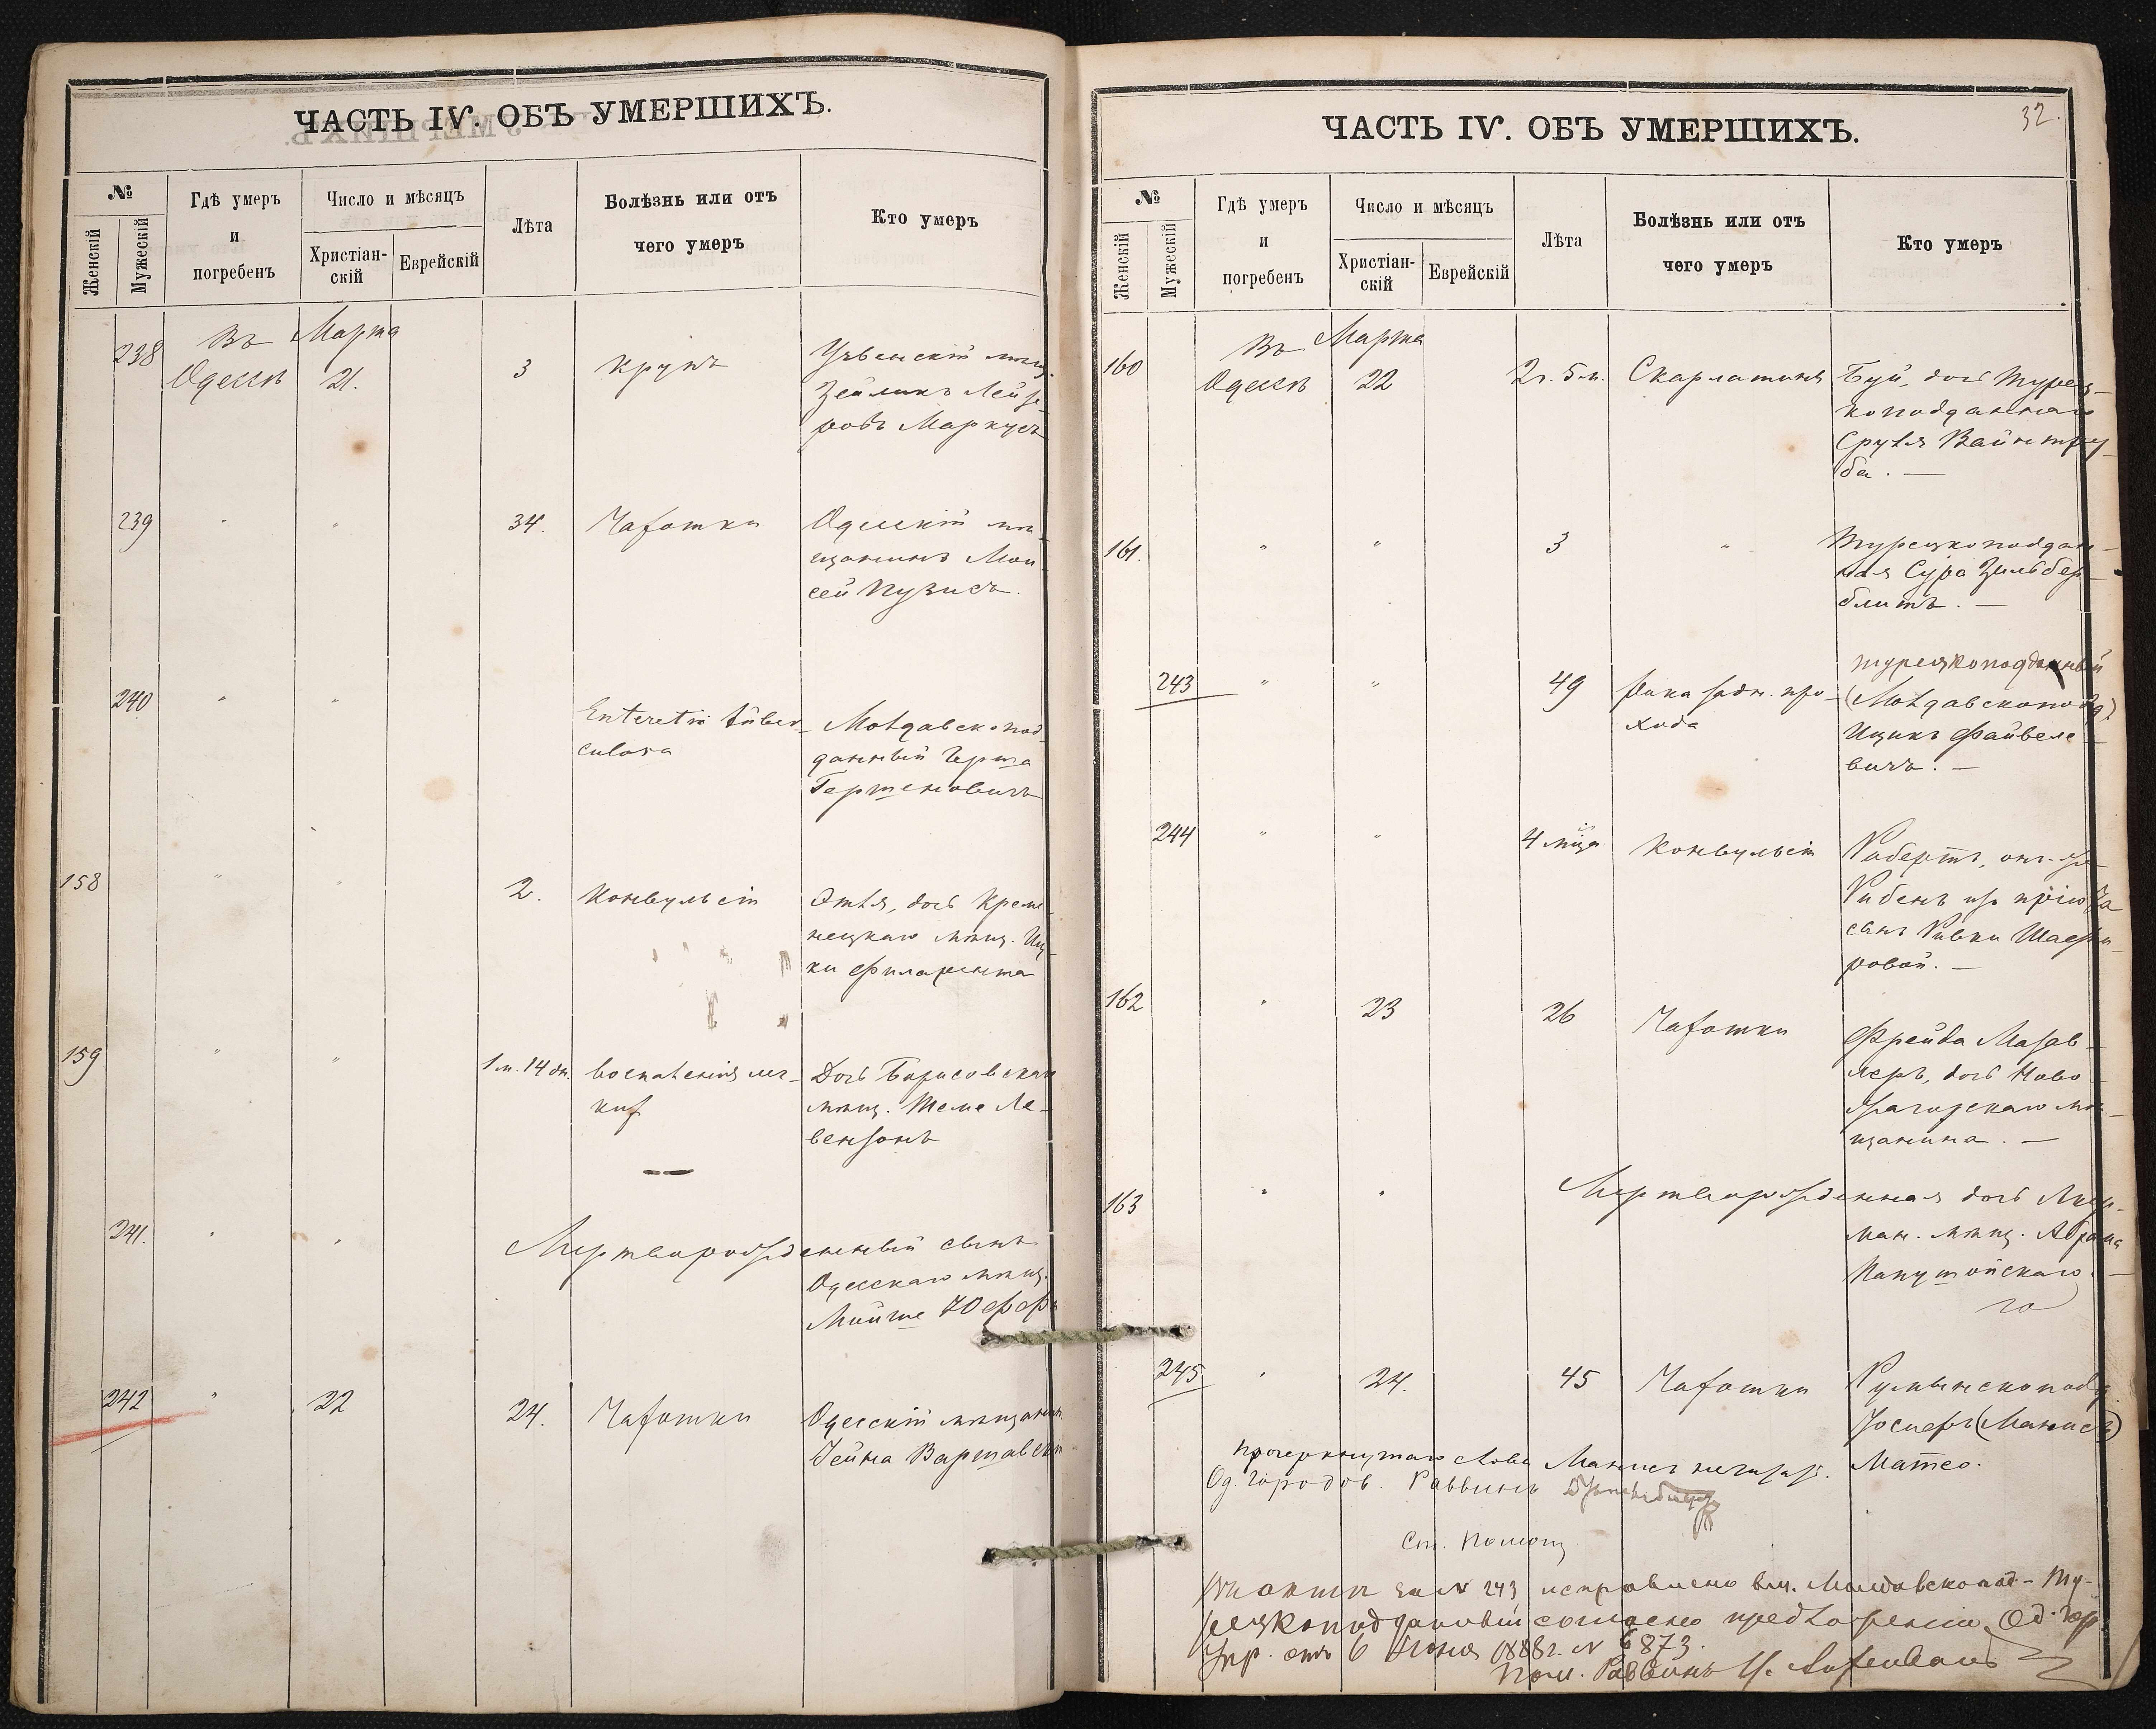 ЧАСТЬ IV. ОБЪ УМЕРШИХЪ.
№
Женскій
Мужескій
Гдѣ умеръ
и
погребенъ
Число и мѣсяцъ
Христіан-
скій
Еврейскій
Лѣта
Болѣзнь или отъ
чего умеръ
Кто умеръ
238 Въ Марта
Одессѣ 21. 3 Крупъ
Зейликъ Лейзе-
ровъ Маркусъ
239 " " 34. Чахотки Одесскій мѣ-
щанинъ Мои-
сей Пузисъ.
240 " " Enteretis tuber-
culosa Молдавскопод-
данный Герша
Гершеновичъ
158 " " 2. Конвульсіи Этля, дочь Креме-
нецкаго мѣщ. Иц-
ки
159 " " 1 м. 14 дн. Воспаленія лег-
кихъ Дочь Борисовскаго
мѣщ. Ле-
вензонъ
241. " " Мертворожденный сынъ
Одесскаго мѣщ.
Мойше Юффъ
242 " 22 24. Чахотки Одесскій мѣщанинъ
Хейна Варшавскій
ЧАСТЬ IV. ОБЪ УМЕРШИХЪ.
32.
№
Женскій
Мужескій
Гдѣ умеръ
и
погребенъ
Число и мѣсяцъ
Христіан-
скій
Еврейскій
Лѣта
Болѣзнь или отъ
чего умеръ
Кто умеръ
160 Въ Марта
Одессѣ 22 2 г. 5 м. Скарлатины Буй, дочь Турец-
коподданнаго
Сруля Вайнтру-
ба. —
161. " " 3 " Турецкоподдан-
ная Сура Зильбер-
блитъ. —
243 " " 49 Рака задн. про-
хода турецкоподданный
(Молдавскопод.)
Ицикъ Файвеле-
вичъ. —
244 " " 4 мѣца Конвульсіи Робертъ, онъ-же
Рибенъ изъ пріюта
сынъ Ривки Шафи-
ровой. —
162 " 23 26 Чахотки Фрейда Мазав-
леръ, дочь Ново-
мѣ-
щанина. —
163 " " Мертворожденная дочь Акер-
ман. мѣщ. Абрама
Капушонскаго —
245 " 24. 45 Чахотки Румынскопод.
Іосифъ (Манисъ)
Матео.
Прочеркнутаго слова Манисъ не читать.
Од. Городов. Раввинъ
Ст. Помощ.
Въ актѣ за № 243 исправлено вм. Молдавскопод - Ту-
рецкоподданный согласно предложенію Од. Гор.
Упр. отъ 6 Іюня 1888 г. № 6873.
Пом. Раввинъ